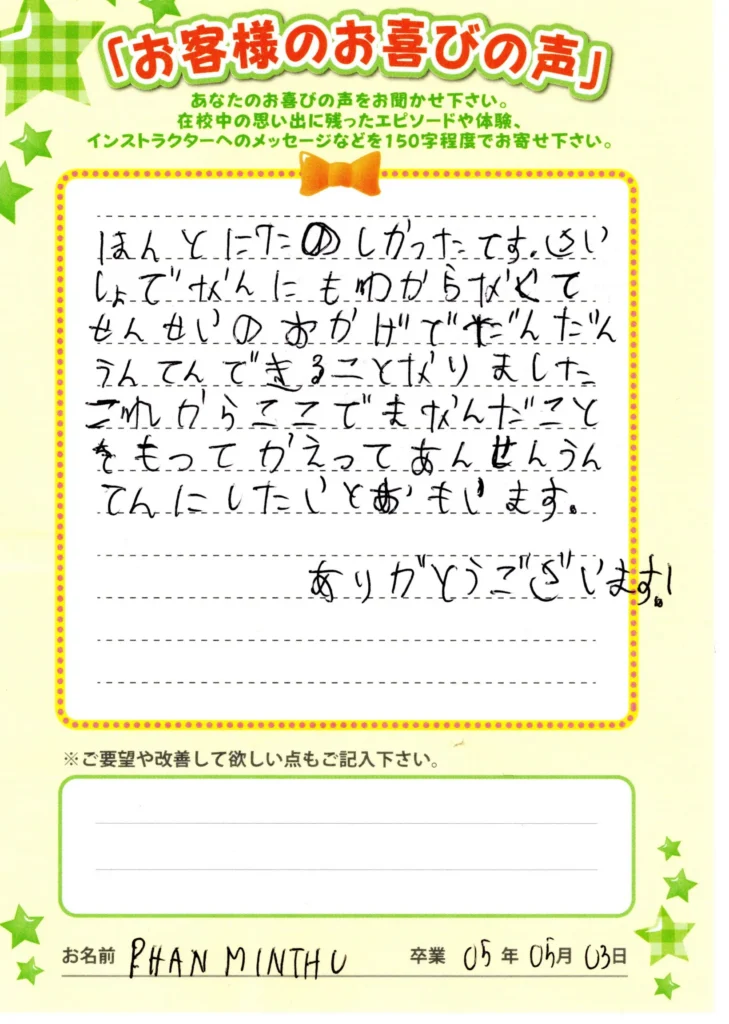 「お客様のお喜びの声」
あなたのお喜びの声をお聞かせ下さい。
在校中の思い出に残ったエピソードや体験、
インストラクターへのメッセージなどを150字程度でお寄せ下さい。
ほんとにたのしかったです。さい
しょでなんにもわからなくて
せんせいのおかげでだんだん
うんてんできることなりました
これからここでまなんだこと
をもってかえってあんせんうん
てんにしたいとおもいます。
ありがとうございます!
※ご要望や改善して欲しい点もご記入下さい。
お名前 PHAN MINTHU 卒業 05年05月03日